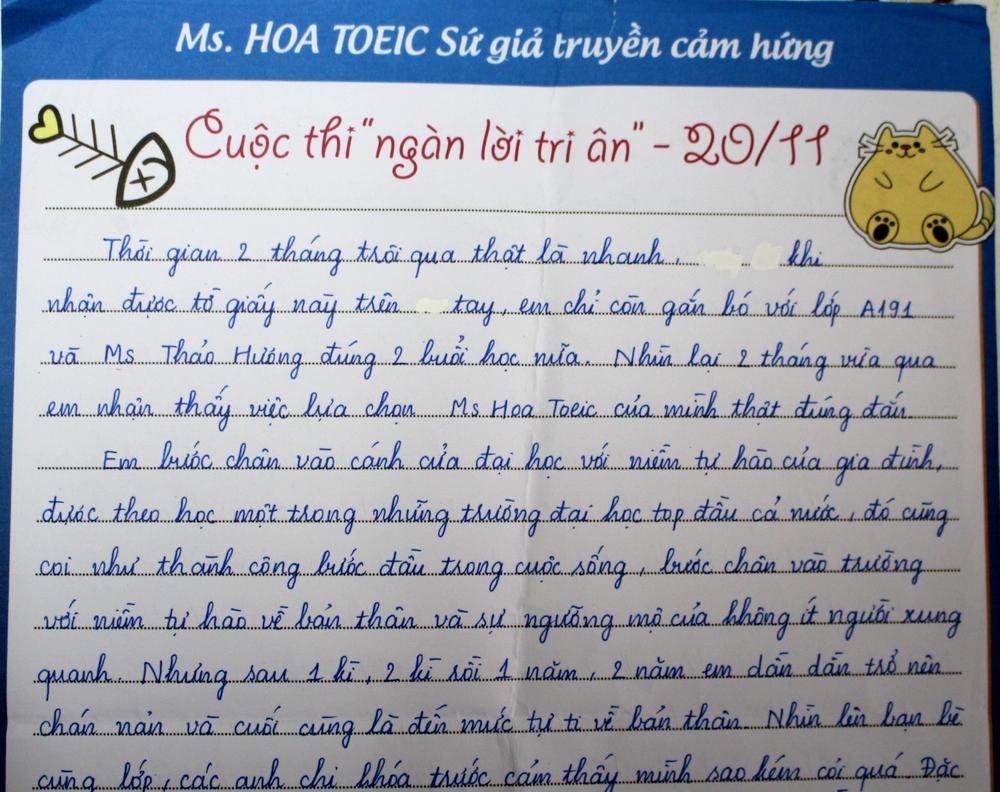 Ms. HOA TOEIC Sứ giả truyền cảm hứng
Cuộc thi "ngàn lời tri ân" - 20/11
Thời gian 2 tháng trôi qua thật là nhanh, khi
nhận được tờ giấy này trên tay, em chỉ còn gắn bó với lớp A191
và Ms Thảo Hương đúng 2 buổi học nữa. Nhìn lại 2 tháng vừa qua
em nhận thấy việc lựa chọn Ms Hoa Toeic của mình thật đúng đắn.
Em bước chân vào cánh cửa đại học với niềm tự hào của gia đình,
được theo học một trong những trường đại học top đầu cả nước, đó cũng
coi như thành công bước đầu trong cuộc sống, bước chân vào trường
với niềm tự hào về bản thân và sự ngưỡng mộ của không ít người xung
quanh. Nhưng sau 1 kì, 2 kì rồi 1 năm, 2 năm em dần dần trở nên
chán nản và cuối cùng là đến mức tự ti về bản thân. Nhìn lên bạn bè
cùng lớp, các anh chị khóa trước cảm thấy mình sao kém cỏi quá. Đặc